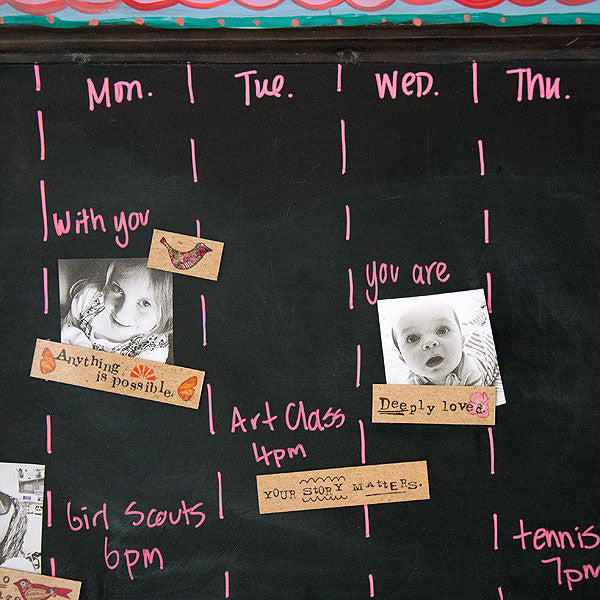 Mon.
Tue.
Wed.
Thu.
With you
Anything
is possible.
you are
Deeply loved.
Art Class
4pm
YOUR STORY MATTERS.
Girl Scouts
6pm
tennis
7pm